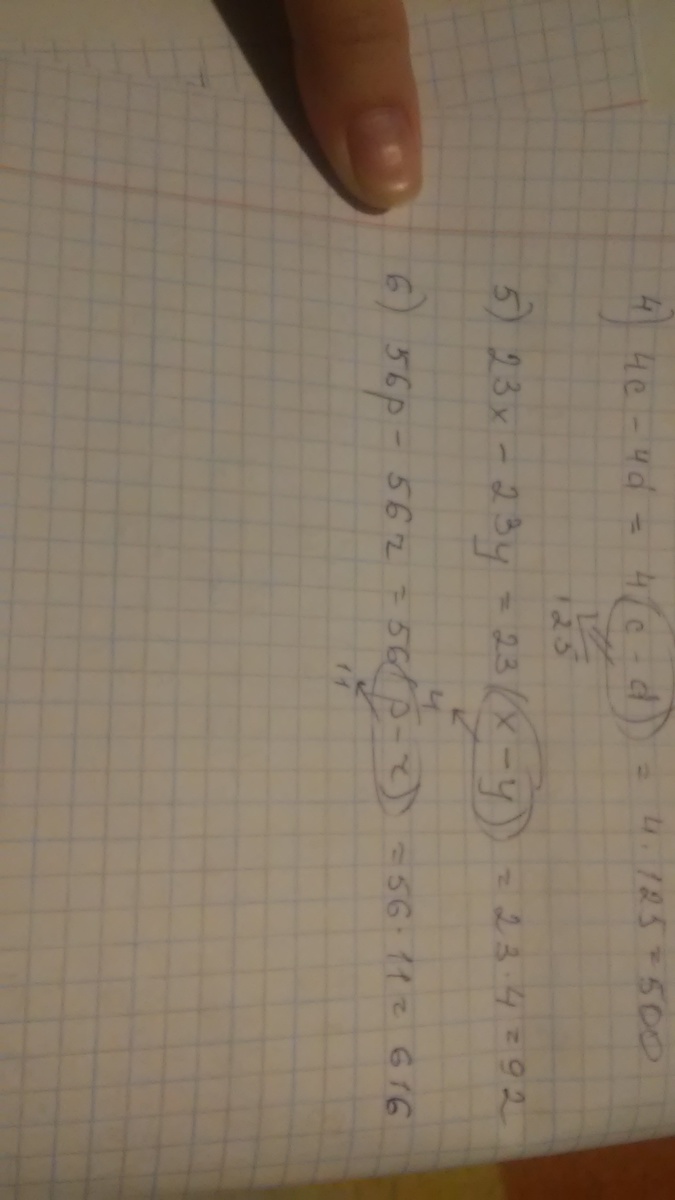 4) 4c - 4d = 4(c - d) = 4 · 125 = 500
125
5) 23x - 23y = 23(x - y) = 23 · 4 = 92
4
6) 56p - 56r = 56(p - r) = 56 · 11 = 616
11